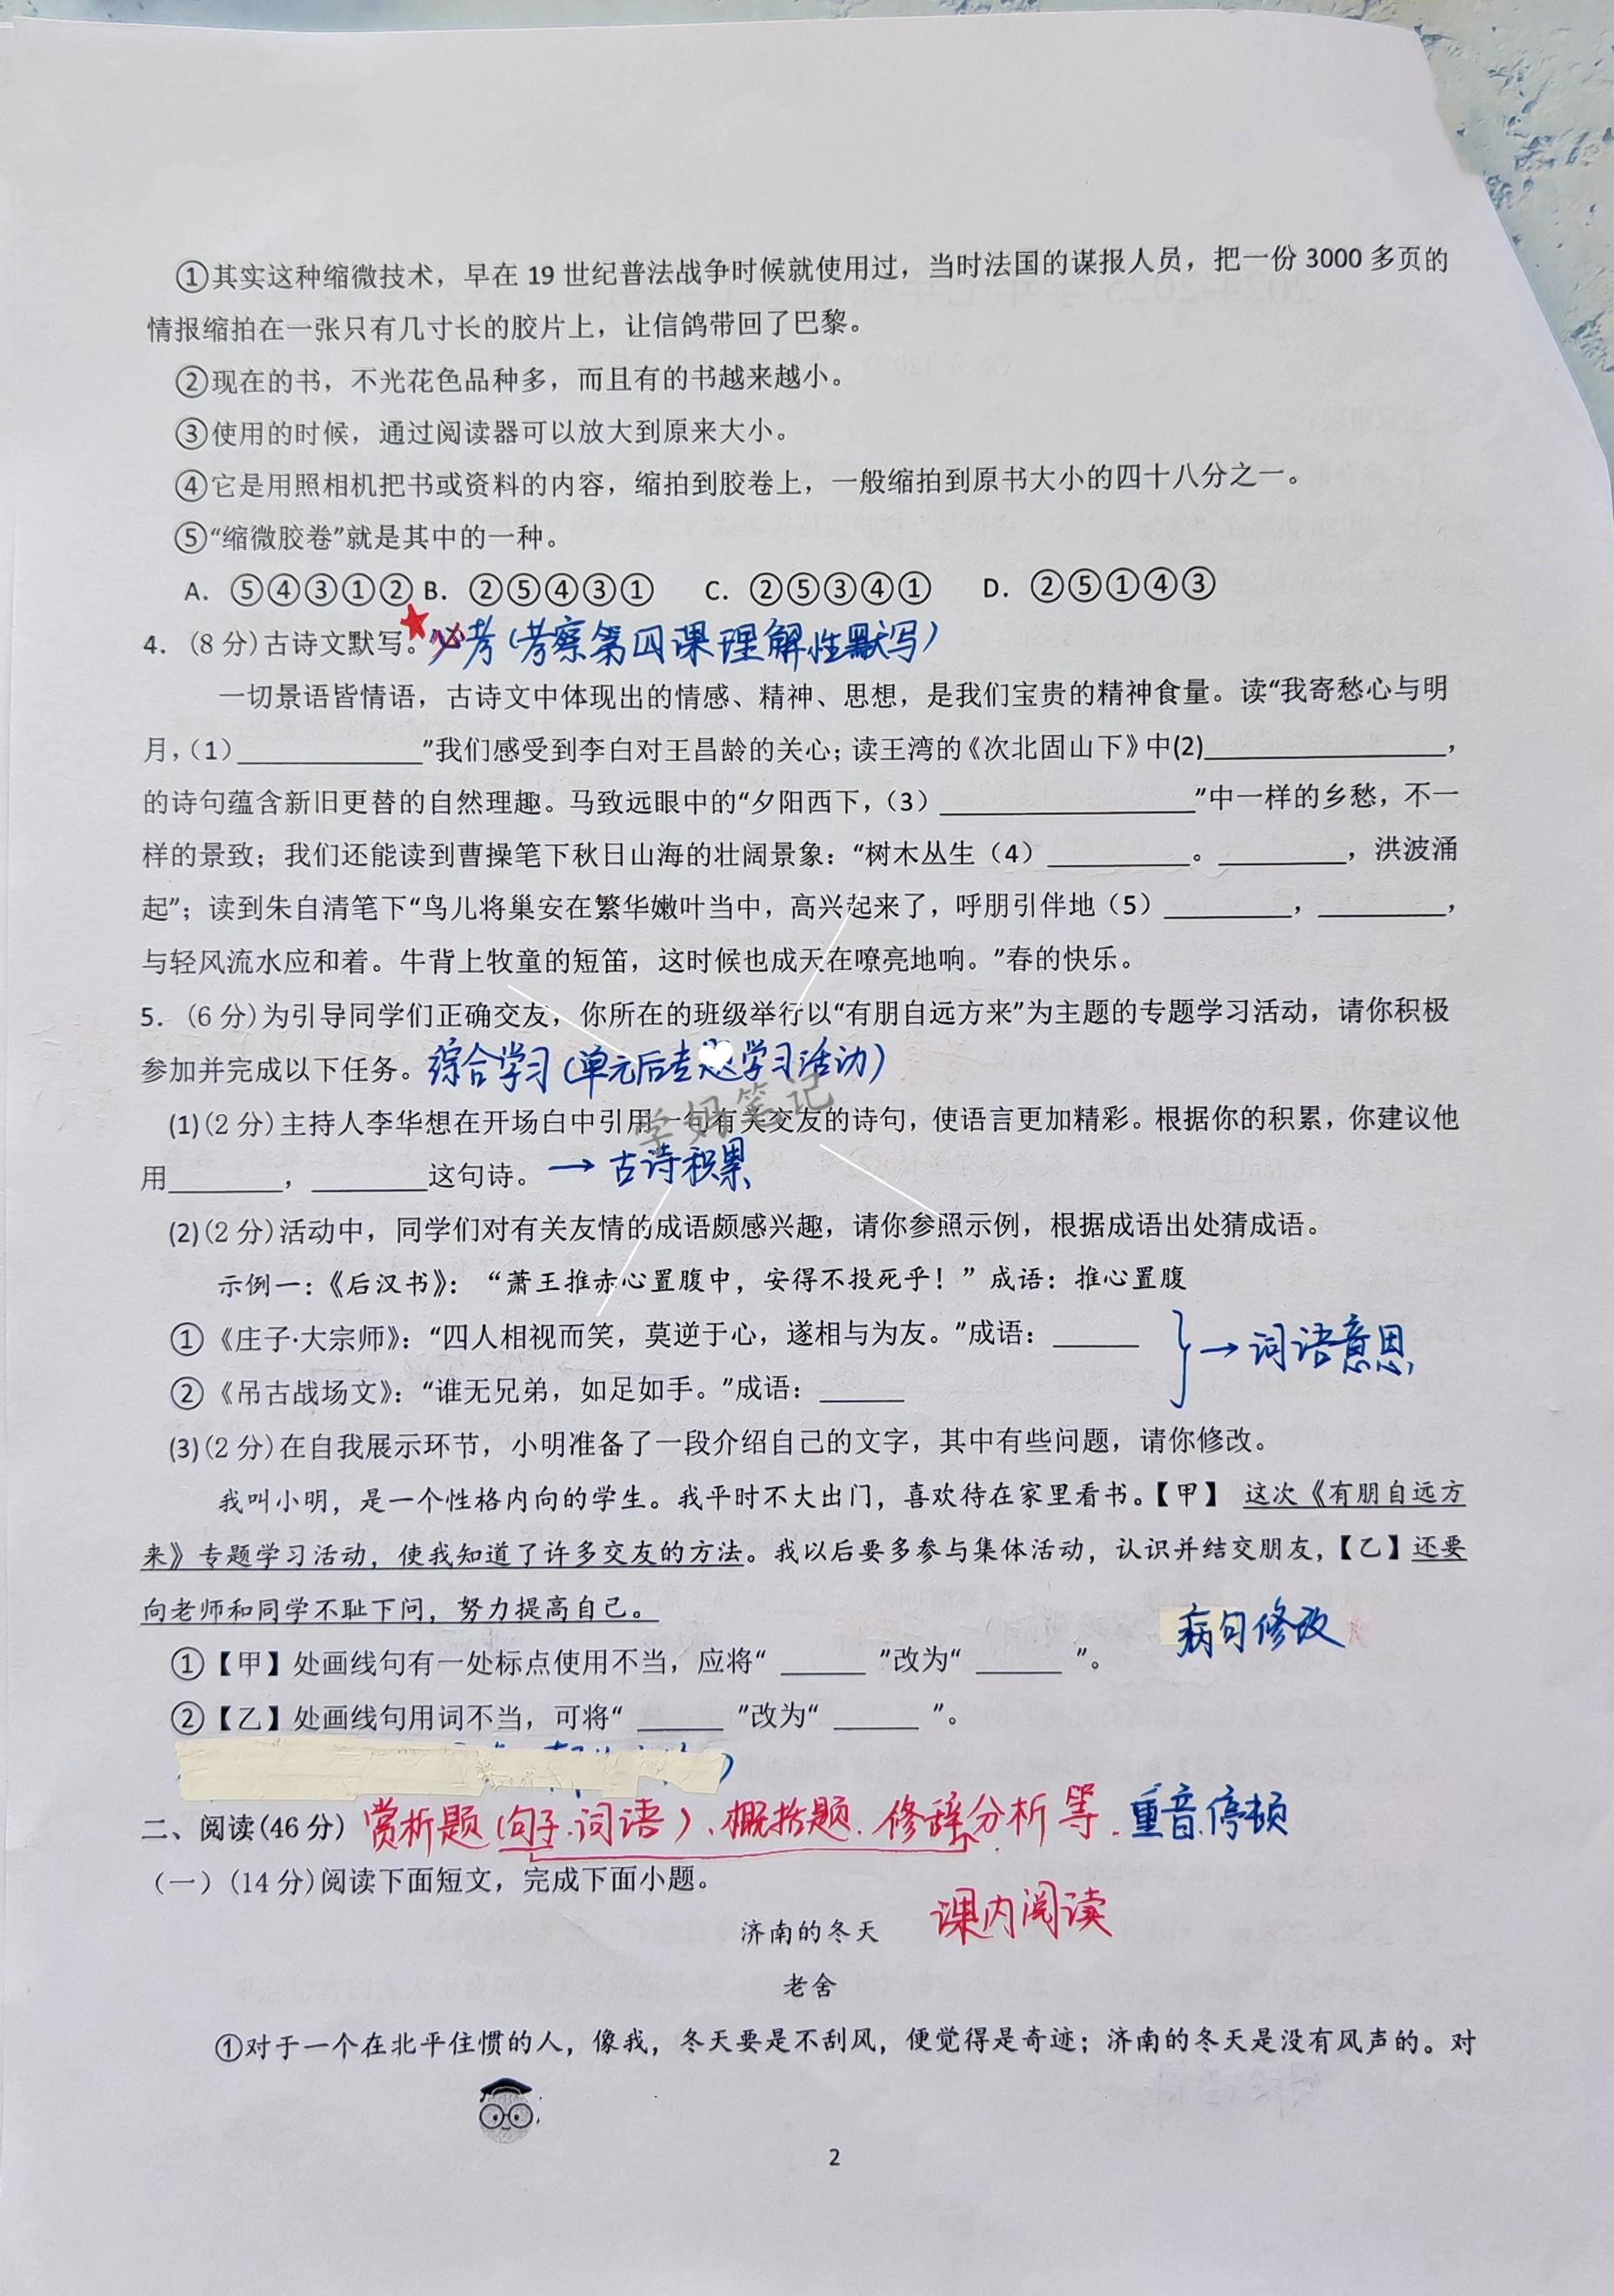 ①其实这种缩微技术，早在 19 世纪普法战争时候就使用过，当时法国的谋报人员，把一份 3000 多页的
情报缩拍在一张只有几寸长的胶片上，让信鸽带回了巴黎。
②现在的书，不光花色品种多，而且有的书越来越小。
③使用的时候，通过阅读器可以放大到原来大小。
④它是用照相机把书或资料的内容，缩拍到胶卷上，一般缩拍到原书大小的四十八分之一。
⑤“缩微胶卷”就是其中的一种。
A．⑤④③①② B．②⑤④③① C．②⑤③④① D．②⑤①④③
4．(8 分)古诗文默写。必考(考察第四课理解性默写)
一切景语皆情语，古诗文中体现出的情感、精神、思想，是我们宝贵的精神食量。读“我寄愁心与明
月，（1）____________”我们感受到李白对王昌龄的关心；读王湾的《次北固山下》中(2)________________，
的诗句蕴含新旧更替的自然理趣。马致远眼中的“夕阳西下，（3）________________”中一样的乡愁，不一
样的景致；我们还能读到曹操笔下秋日山海的壮阔景象：“树木丛生（4）_________。________，洪波涌
起”；读到朱自清笔下“鸟儿将巢安在繁华嫩叶当中，高兴起来了，呼朋引伴地（5）________，________，
与轻风流水应和着。牛背上牧童的短笛，这时候也成天在嘹亮地响。”春的快乐。
5．(6 分)为引导同学们正确交友，你所在的班级举行以“有朋自远方来”为主题的专题学习活动，请你积极
参加并完成以下任务。综合学习(单元后专题学习活动)
学妈笔记
(1)(2 分)主持人李华想在开场白中引用一句有关交友的诗句，使语言更加精彩。根据你的积累，你建议他
用________，________这句诗。→古诗积累
(2)(2 分)活动中，同学们对有关友情的成语颇感兴趣，请你参照示例，根据成语出处猜成语。
示例一：《后汉书》：“萧王推赤心置腹中，安得不投死乎！”成语：推心置腹
①《庄子·大宗师》：“四人相视而笑，莫逆于心，遂相与为友。”成语：______
→词语意思
②《吊古战场文》：“谁无兄弟，如足如手。”成语：______
(3)(2 分)在自我展示环节，小明准备了一段介绍自己的文字，其中有些问题，请你修改。
我叫小明，是一个性格内向的学生。我平时不大出门，喜欢待在家里看书。【甲】 这次《有朋自远方
来》专题学习活动，使我知道了许多交友的方法。我以后要多参与集体活动，认识并结交朋友，【乙】还要
向老师和同学不耻下问，努力提高自己。
病句修改
①【甲】处画线句有一处标点使用不当，应将“ ______ ”改为“ ______ ”。
②【乙】处画线句用词不当，可将“ ______ ”改为“ ______ ”。
二、阅读(46 分) 赏析题(句子.词语)、概括题.修辞分析等.重音.停顿
（一）(14 分)阅读下面短文，完成下面小题。
济南的冬天 课内阅读
老舍
①对于一个在北平住惯的人，像我，冬天要是不刮风，便觉得是奇迹；济南的冬天是没有风声的。对
2